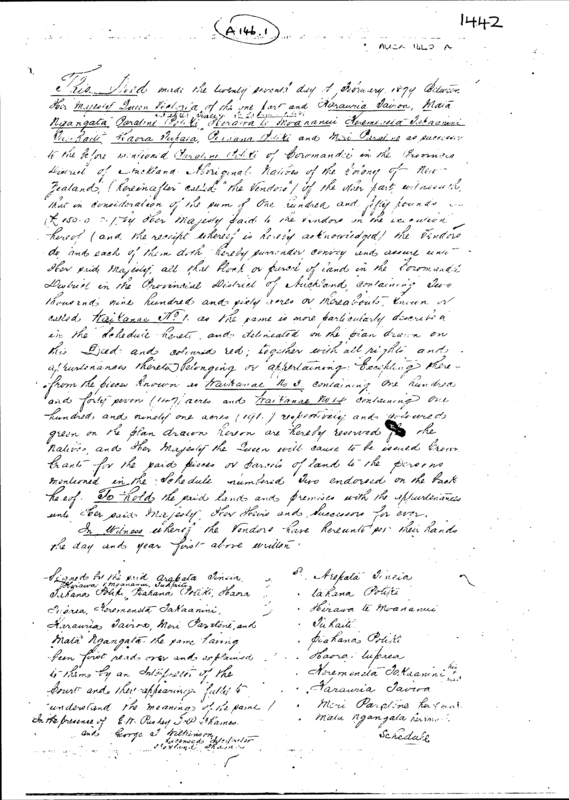 A 146.1
1442
This Deed made the twenty seventh day of February 1874 Between
Her Majesty Queen Victoria of the one part and Karauria Taviora, Mata
Ngangata, Paratine Potiki, Heraiva te Moananui, Heremeneta Takaanini
Haora Tupaea, Potiki and Meri Paratine as successor
to the before mentioned Paratine Potiki of Coromandel in the Province
District of Auckland Aboriginal Natives of the Colony of New
Zealand, (hereinafter called the Vendors) of the other part witnesseth
that in consideration of the sum of One hundred and fifty pounds
(£150.0.-) by Her Majesty paid to the vendors on the execution
hereof (and the receipt whereof is hereby acknowledged) the Vendors
do and each of them doth hereby surrender convey and assure unto
Her said Majesty, all that block or parcel of land in the Coromandel
District in the Provincial District of Auckland containing Two
thousand nine hundred and sixty acres or thereabouts known or
called Waikanae No. 1. as the same is more particularly described
in the Schedule hereto, and delineated on the plan drawn on
this Deed and coloured red; together with all rights and
appurtenances thereto belonging or appertaining. Excepting there-
from the pieces known as Waikanae No 3, containing One hundred
and forty seven (147) acres and Waikanae No 4 containing one
hundred and ninety one acres (191.) respectively and coloured
green on the plan drawn hereon are hereby reserved the
Natives, and Her Majesty the Queen will cause to be issued Crown
Grants for the said pieces or parcels of land to the persons
mentioned in the Schedule numbered Two endorsed on the back
hereof. To hold the said land and premises with the appurtenances
unto Her said Majesty, Her Heirs and Successors for ever.
In Witness whereof the Vendors have hereunto set their hands
the day and year first above written.
Signed by the said Arapata Tineia
Heraiva te Moananui,
Tahana Potiki, Pahana Potiki, Haora
Heremeneta Takaanini,
Karauria Taviora, Meri Paratene, and
Mata Ngangata the same having
been first read over and explained
to them by an Interpreter of the
Court and they appearing fully to
understand the meaning of the same
In the presence of E.W. Puckey J.P. Thames.
and George T Wilkinson
Licensed Interpreter
Arapata Tineia
Tahana Potiki
Heraiva te Moananui
Pahana Potiki
Haora
Heremeneta Takaanini his
Karauria Taviora
Meri Paratine her mark
Mata Ngangata her mark
Schedule